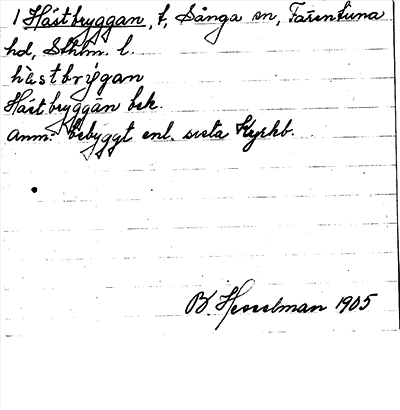 1 Hästbryggan, t, Sånga sn, Färentuna
hd, Sthlm. l.
hästbrygan
Hästbryggan bek.
Anm: bebyggt enl. sista Kyrkb.
B. Hesselman 1905